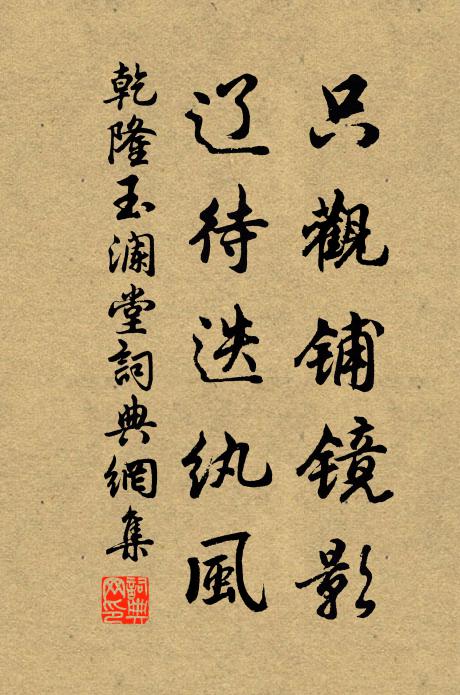 只觀铺镜影
辽待迭纨風
乾隆玉澜堂詞典網集
詞典网印